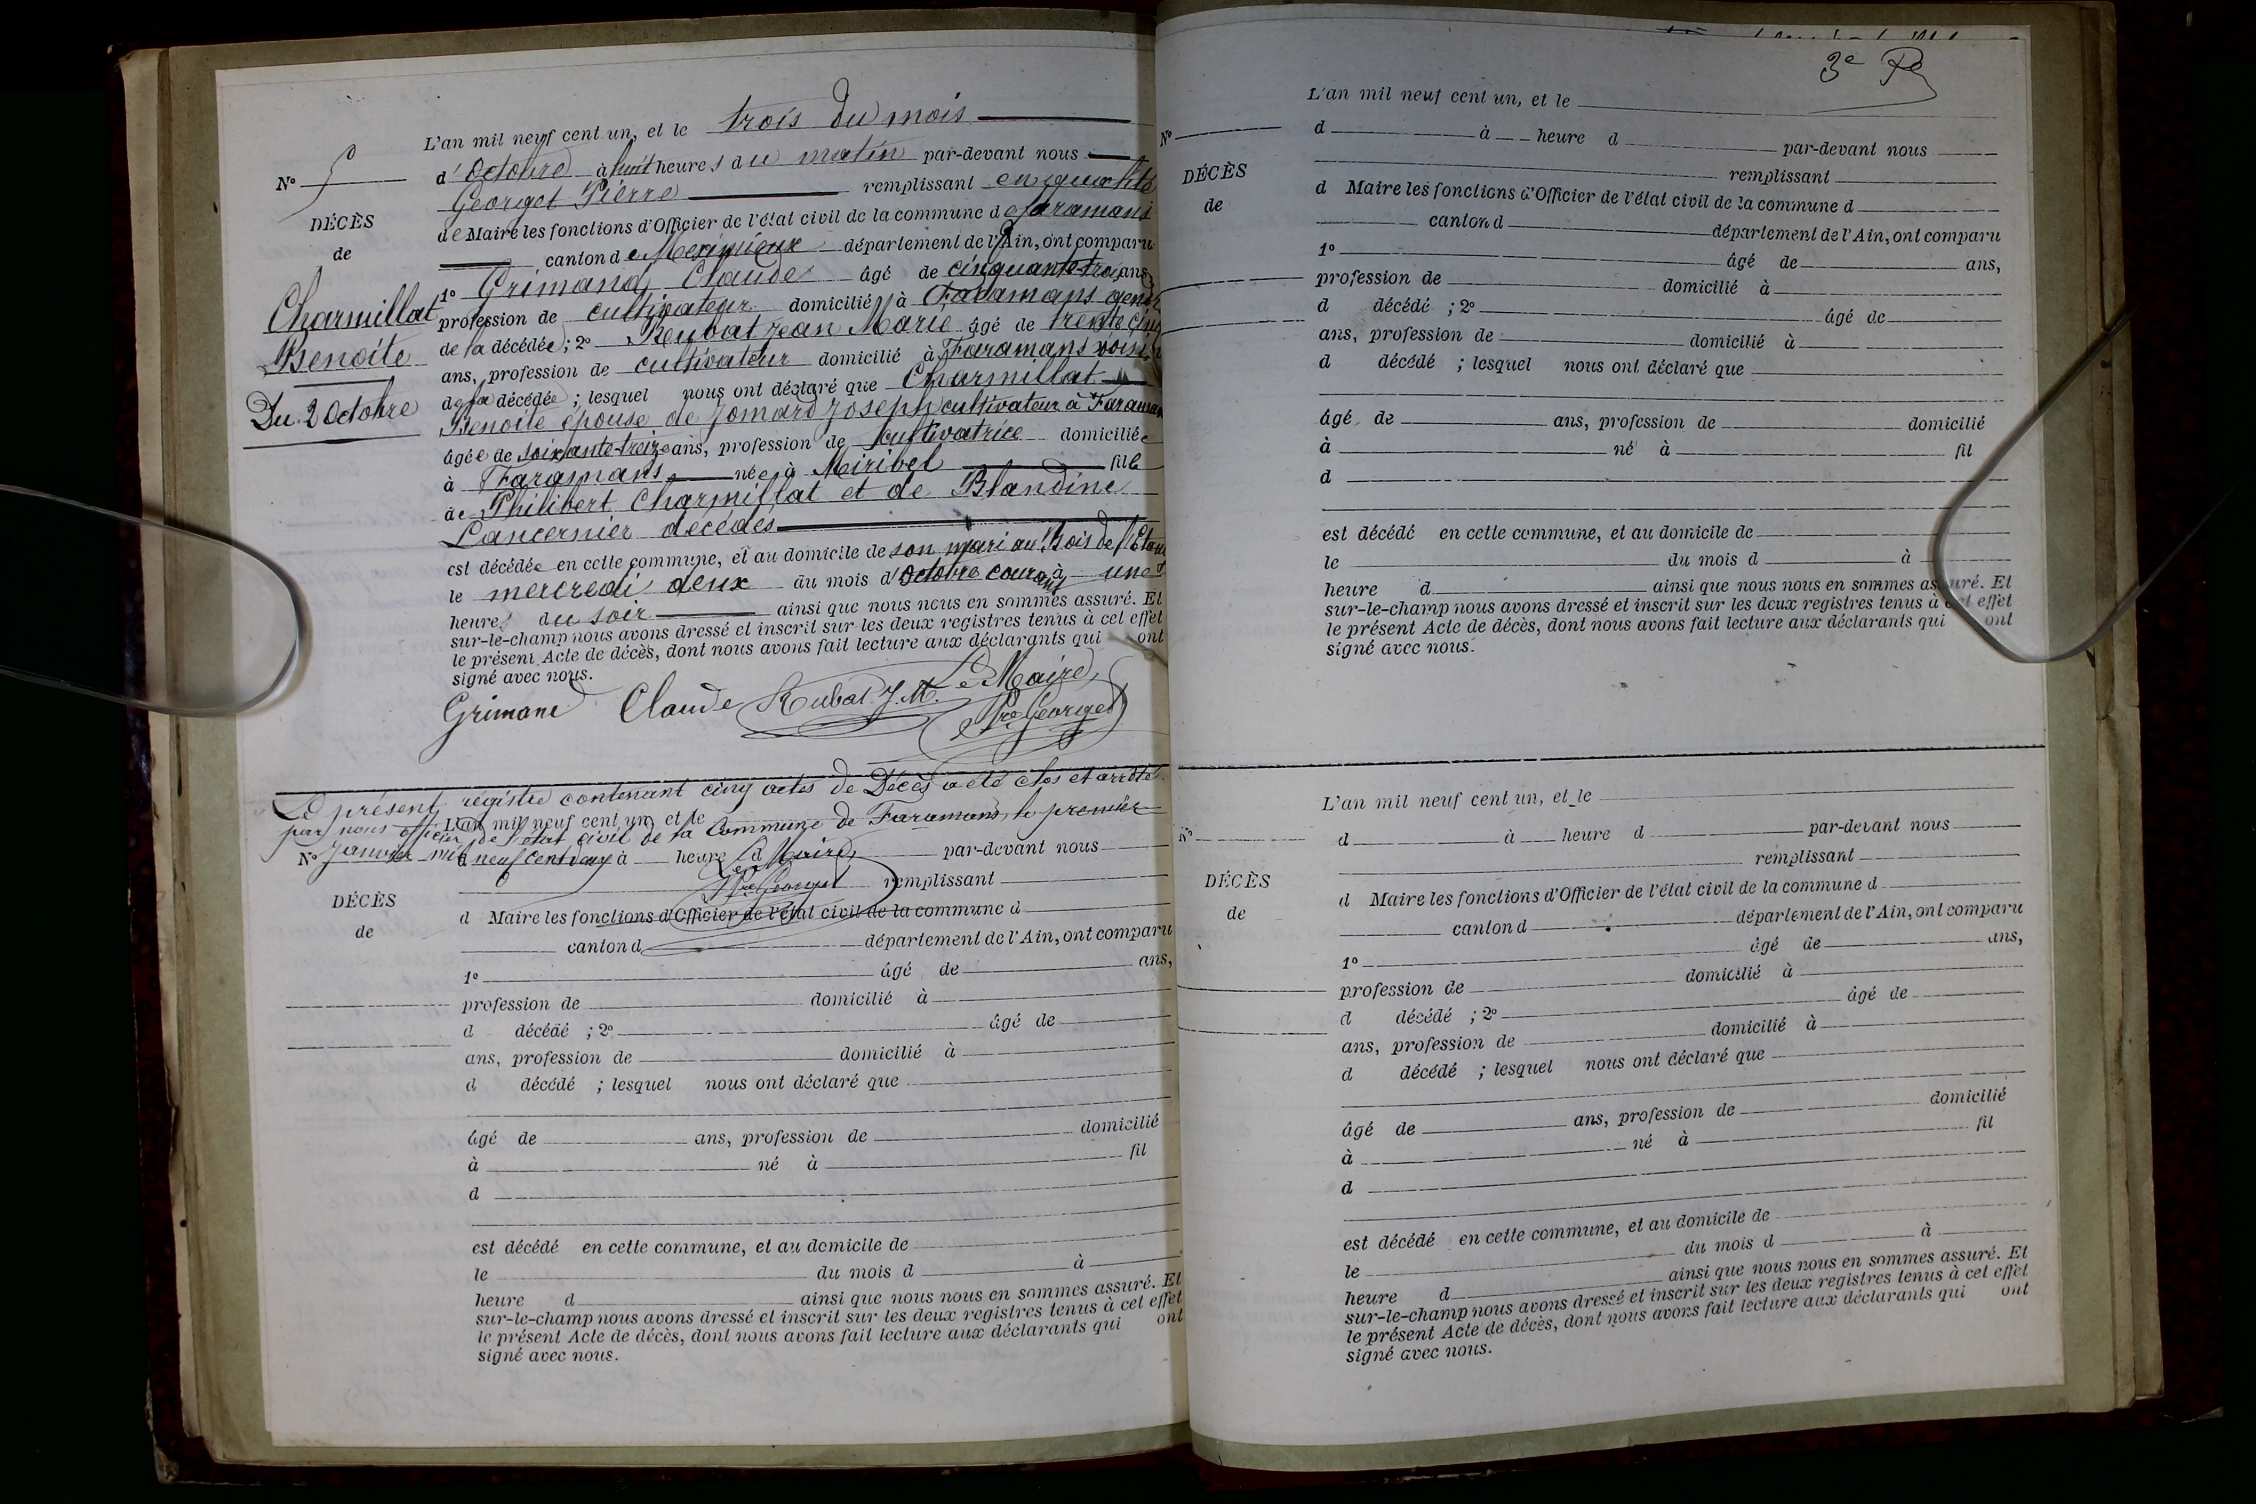 L'an mil neuf cent un, et le trois du mois
N° 5
d'Octobre à huit heures du matin par-devant nous
Georget Pierre remplissant en qualité
DÉCÈS
de Maire les fonctions d'Officier de l'état civil de la commune de Faramans
de
canton de Meximieux département de l'Ain, ont comparu
1° Grimand Claude âgé de cinquante-trois ans,
Charmillat
profession de cultivateur domicilié à Faramans gendre
Benoite
de la décédée ; 2° Rubat Jean Marie âgé de trente cinq
ans, profession de cultivateur domicilié à Faramans voisin
Du 2 Octobre
de la décédée ; lesquel nous ont déclaré que Charmillat
Benoite épouse de Jomard Joseph cultivateur à Faramans
âgée de soixante-treize ans, profession de cultivatrice domiciliée
à Faramans née à Miribel fille
de Philibert Charmillat et de Blandine
Lancernier décédés
est décédée en cette commune, et au domicile de son mari au Bois de l'Etang
le mercredi deux du mois d'Octobre courant à une
heures du soir ainsi que nous nous en sommes assuré. Et
sur-le-champ nous avons dressé et inscrit sur les deux registres tenus à cet effet
le présent Acte de décès, dont nous avons fait lecture aux déclarants qui ont
signé avec nous.
Grimand Claude Rubat J. M. Le Maire,
Pre Georget
Le présent régistre contenant cinq actes de Décès a été clos et arrêté
par nous officier de l'état civil de la Commune de Faramans, le premier
Janvier mil neuf cent deux
Le Maire,
Pre Georget
L'an mil neuf cent un, et le
N°
d à heure d par-devant nous
remplissant
DÉCÈS
d Maire les fonctions d'Officier de l'état civil de la commune d
de
canton d département de l'Ain, ont comparu
1° âgé de ans,
profession de domicilié à
d décédé ; 2° âgé de
ans, profession de domicilié à
d décédé ; lesquel nous ont déclaré que
âgé de ans, profession de domicilié
à né à fil
d
est décédé en cette commune, et au domicile de
le du mois d à
heure d ainsi que nous nous en sommes assuré. Et
sur-le-champ nous avons dressé et inscrit sur les deux registres tenus à cet effet
le présent Acte de décès, dont nous avons fait lecture aux déclarants qui ont
signé avec nous.
3e
L'an mil neuf cent un, et le
N°
d à heure d par-devant nous
remplissant
DÉCÈS
d Maire les fonctions d'Officier de l'état civil de la commune d
de
canton d département de l'Ain, ont comparu
1° âgé de ans,
profession de domicilié à
d décédé ; 2° âgé de
ans, profession de domicilié à
d décédé ; lesquel nous ont déclaré que
âgé de ans, profession de domicilié
à né à fil
d
est décédé en cette commune, et au domicile de
le du mois d à
heure d ainsi que nous nous en sommes assuré. Et
sur-le-champ nous avons dressé et inscrit sur les deux registres tenus à cet effet
le présent Acte de décès, dont nous avons fait lecture aux déclarants qui ont
signé avec nous.
L'an mil neuf cent un, et le
N°
d à heure d par-devant nous
remplissant
DÉCÈS
d Maire les fonctions d'Officier de l'état civil de la commune d
de
canton d département de l'Ain, ont comparu
1° âgé de ans,
profession de domicilié à
d décédé ; 2° âgé de
ans, profession de domicilié à
d décédé ; lesquel nous ont déclaré que
âgé de ans, profession de domicilié
à né à fil
d
est décédé en cette commune, et au domicile de
le du mois d à
heure d ainsi que nous nous en sommes assuré. Et
sur-le-champ nous avons dressé et inscrit sur les deux registres tenus à cet effet
le présent Acte de décès, dont nous avons fait lecture aux déclarants qui ont
signé avec nous.